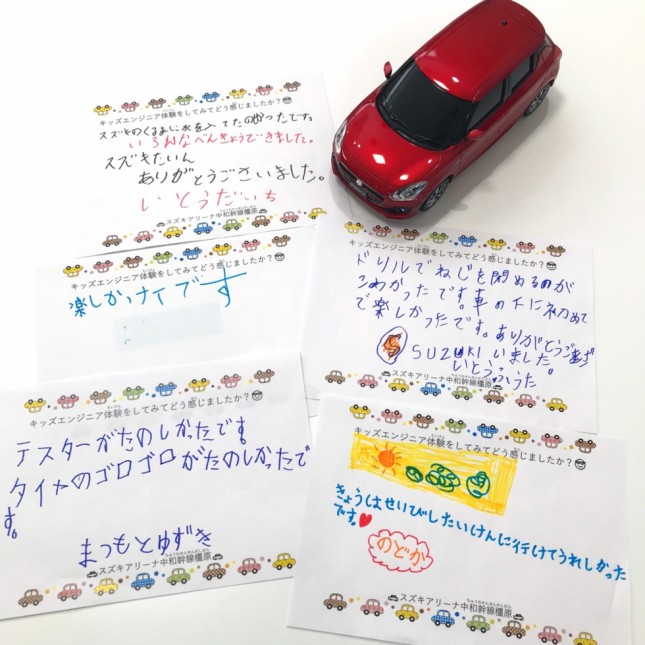 キッズエンジニア体験をしてみてどう感じましたか？
スズキのくるまに水を入てたのしかったです。
いろんなべんきょうできました。
スズキたいん
ありがとうございました。
いとうだいち
スズキアリーナ中和幹線橿原
キッズエンジニア体験をしてみてどう感じましたか？
楽しかッナイです
キッズエンジニア体験をしてみてどう感じましたか？
ドリルでねじを閉めるのが
こわかったです。車の下に初めて
で楽しかったです。ありがとうござ
SUZUKI いました。
いとうふうた
スズキアリーナ中和幹線橿原
キッズエンジニア体験をしてみてどう感じましたか？
テスターがたのしかったです。
タイヤのゴロゴロがたのしかったで
す。
まつもとゆずき
スズキアリーナ中和幹線橿原
キッズエンジニア体験をしてみてどう感じましたか？
きょうはせいびしたいけんに行けてうれしかった
です。
のどか
スズキアリーナ中和幹線橿原